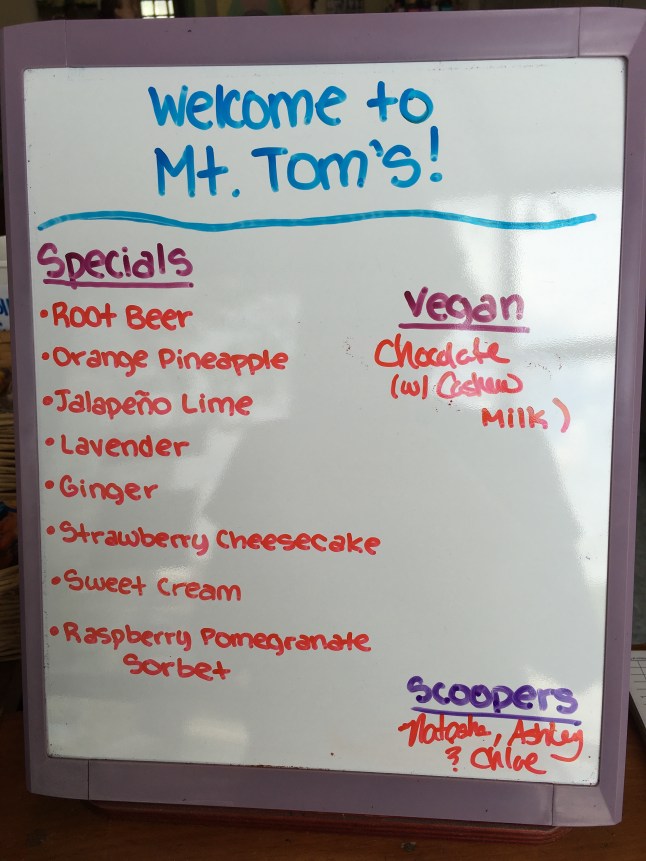 Welcome to
Mt. Tom's!
Specials
•Root Beer
•Orange Pineapple
•Jalapeño Lime
•Lavender
•Ginger
•Strawberry Cheesecake
•Sweet Cream
•Raspberry Pomegranate
Sorbet
Vegan
Chocolate
(w/ Cashew
Milk)
Scoopers
Natasha, Ashley
& Chloe